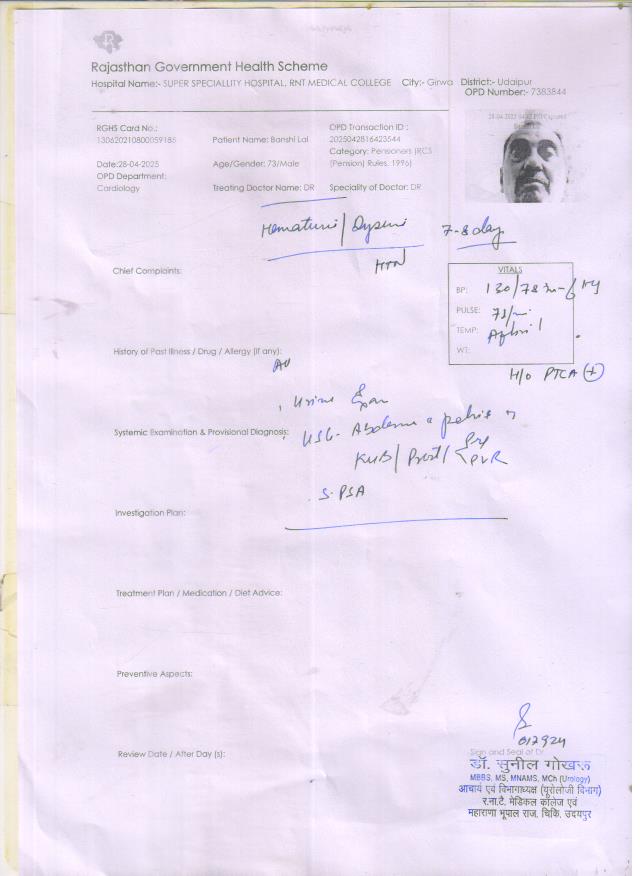 Rajasthan Government Health Scheme
Hospital Name:- SUPER SPECIALLITY HOSPITAL, RNT MEDICAL COLLEGE City:- Girwa District:- Udaipur
OPD Number:- 7383844
RGHS Card No.:
130620210800059186
Patient Name: Banshi Lal
OPD Transaction ID :
2025042816423544
Category: Pensioners (RCS
(Pension) Rules, 1996)
Date:28-04-2025
Age/Gender: 73/Male
OPD Department:
Cardiology
Treating Doctor Name: DR
Speciality of Doctor: DR
Hematuri/ Dysuri 7-8 day
HTN
Chief Complaints:
VITALS
BP: 130/78 Hg
PULSE: 78/mi
TEMP:
WT:
H/O PTCA +
History of Past Illness / Drug / Allergy (if any):
Urine
Systemic Examination & Provisional Diagnosis:
USG- Abdomen pelvis
KUB/ Prost/ PVR
S. PSA
Investigation Plan:
Treatment Plan / Medication / Diet Advice:
Preventive Aspects:
Review Date / After Day (s):
017924
Sign and Seal of Dr
डॉ. सुनील गोखरू
MBBS, MS, MNAMS, MCh (Urology)
आचार्य एवं विभागाध्यक्ष (यूरोलोजी विभाग)
र.ना.टै. मेडिकल कॉलेज एवं
महाराणा भूपाल राज. चिकि. उदयपुर